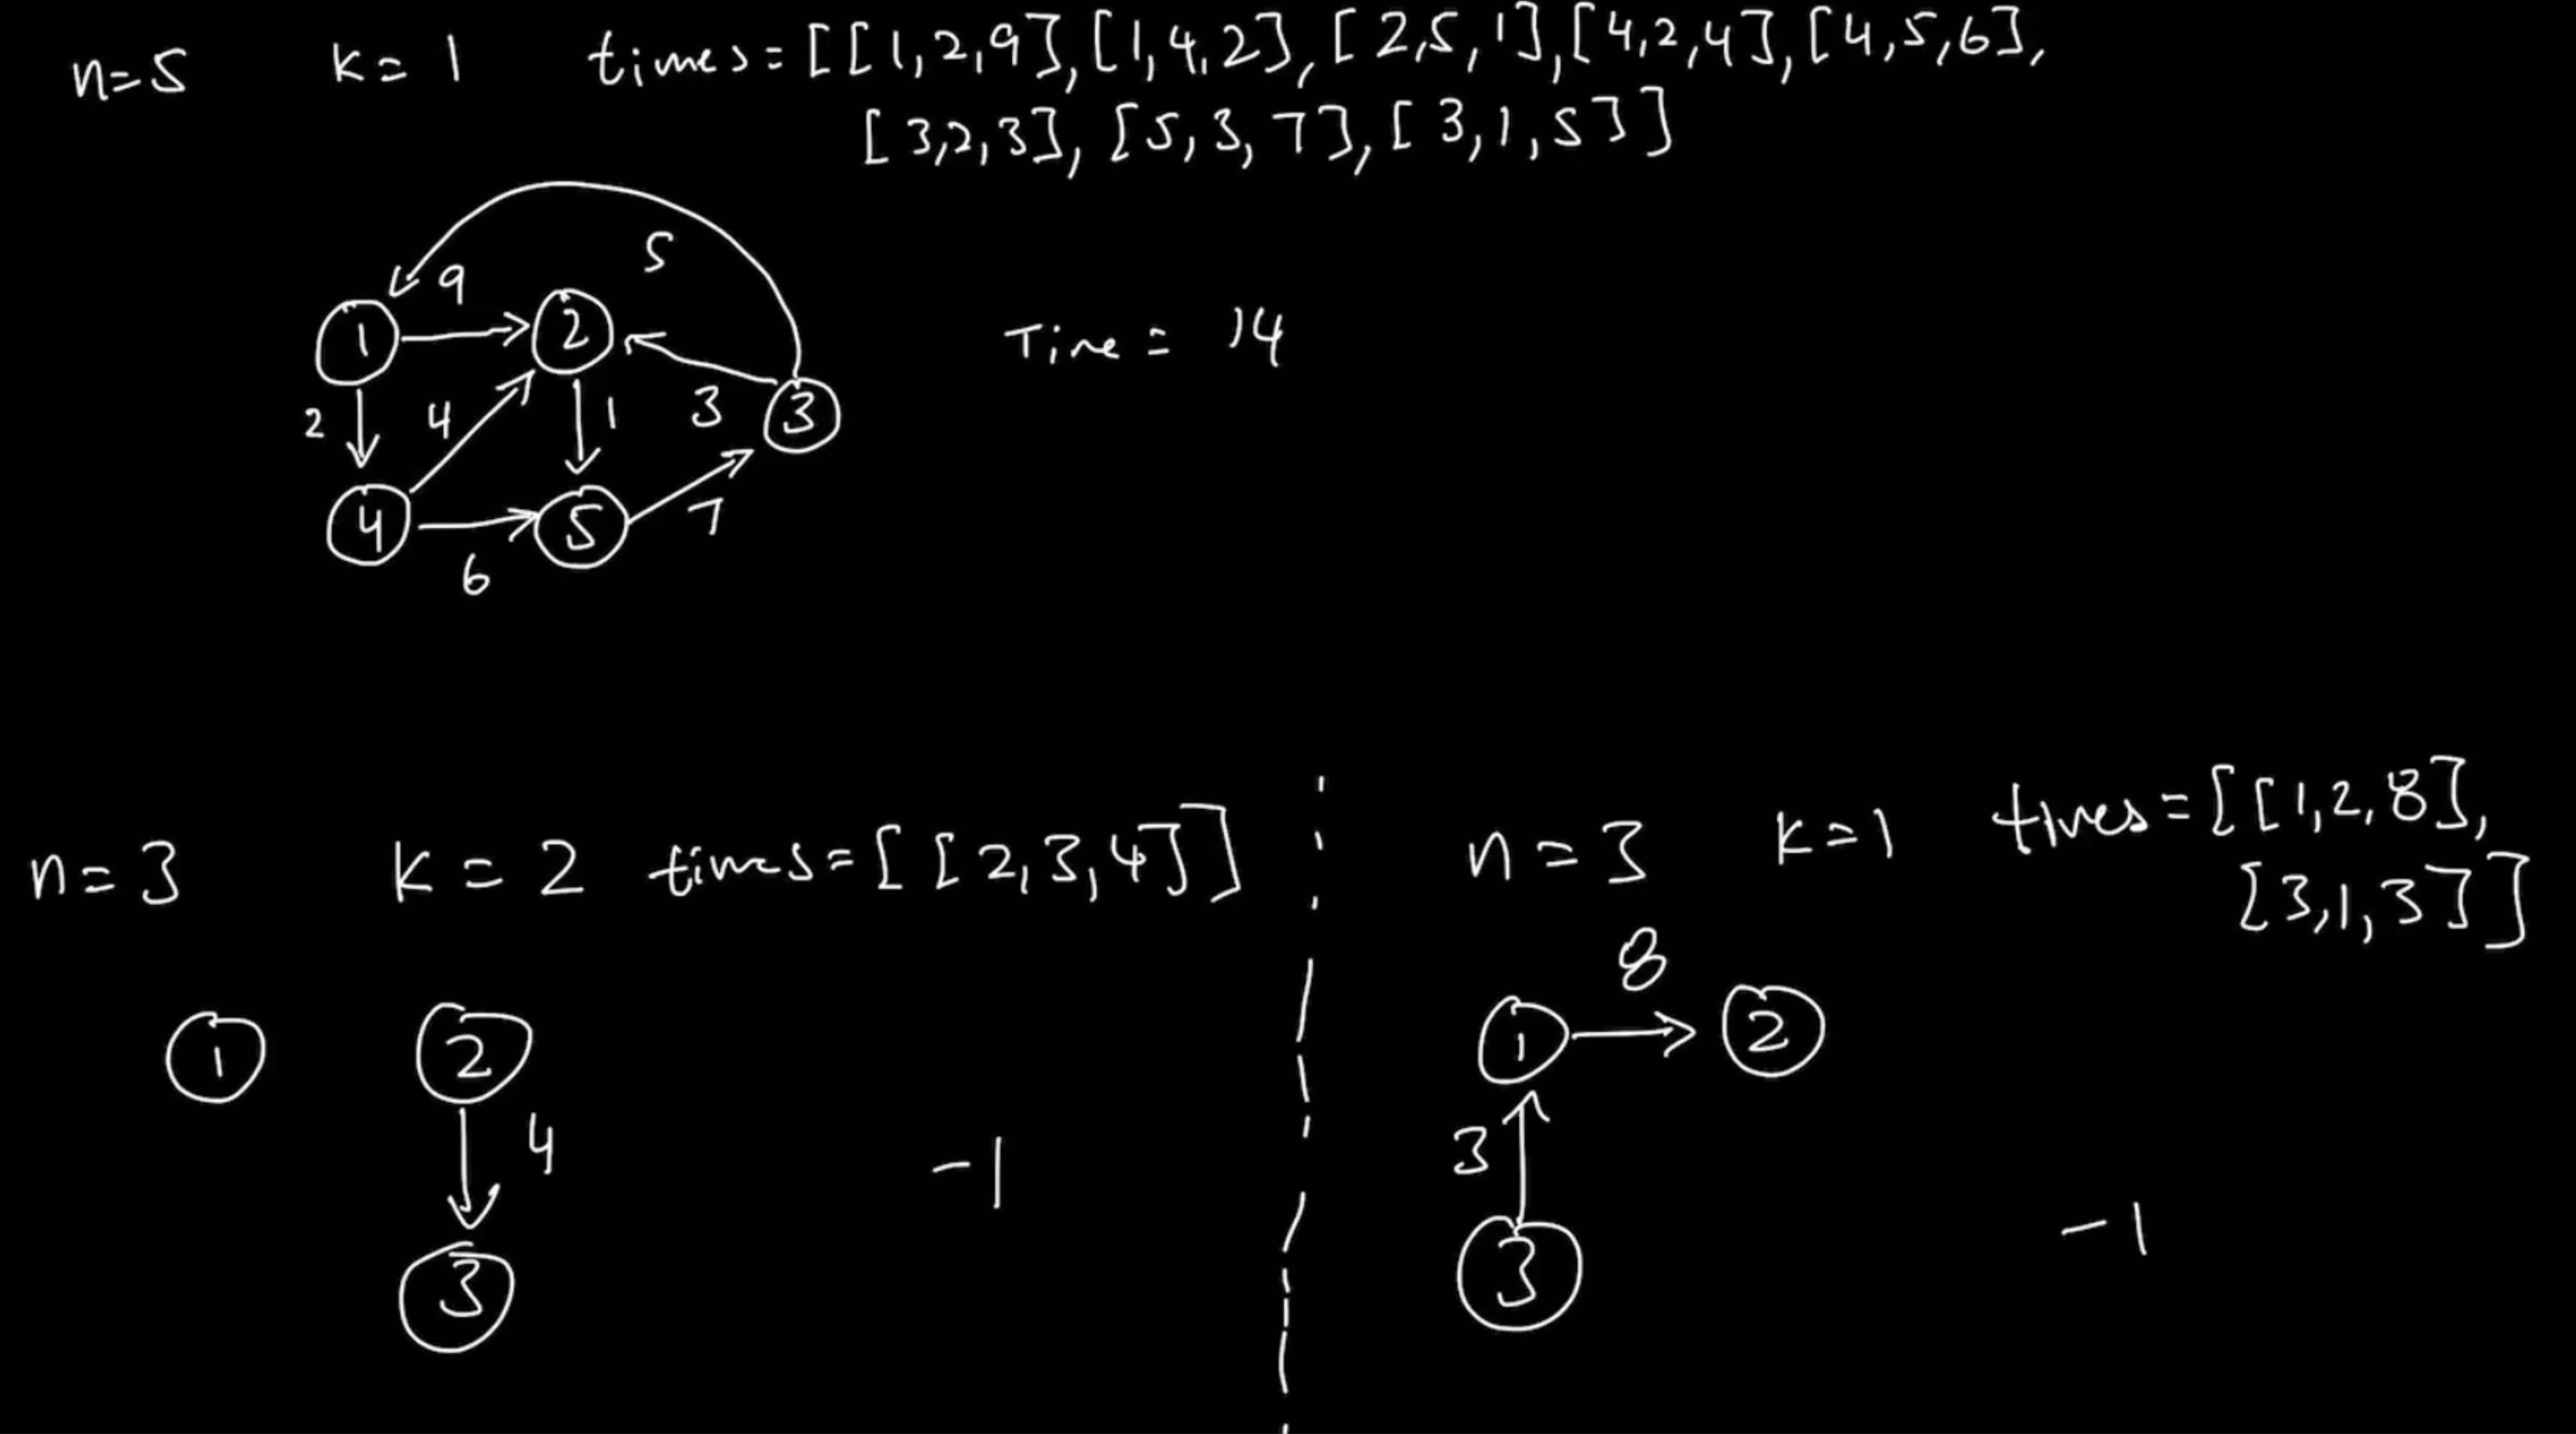 n=5 k=1 times=[[1,2,9],[1,4,2],[2,5,1],[4,2,4],[4,5,6],
[3,2,3],[5,3,7],[3,1,5]]
5
9
1
2
Time = 14
2
4
1
3
3
4
5
7
6
n=3 k=2 times=[[2,3,4]]
1
2
4
-1
3
n=3 k=1 times=[[1,2,8],
[3,1,3]]
8
1
2
3
-1
3